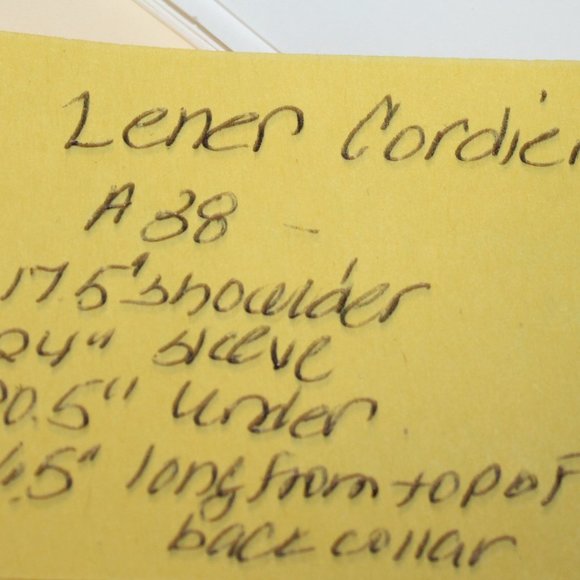 Lener Cordier
A 38 -
17.5" shoulder
24" sleeve
20.5" under
.5" long from top of
back collar